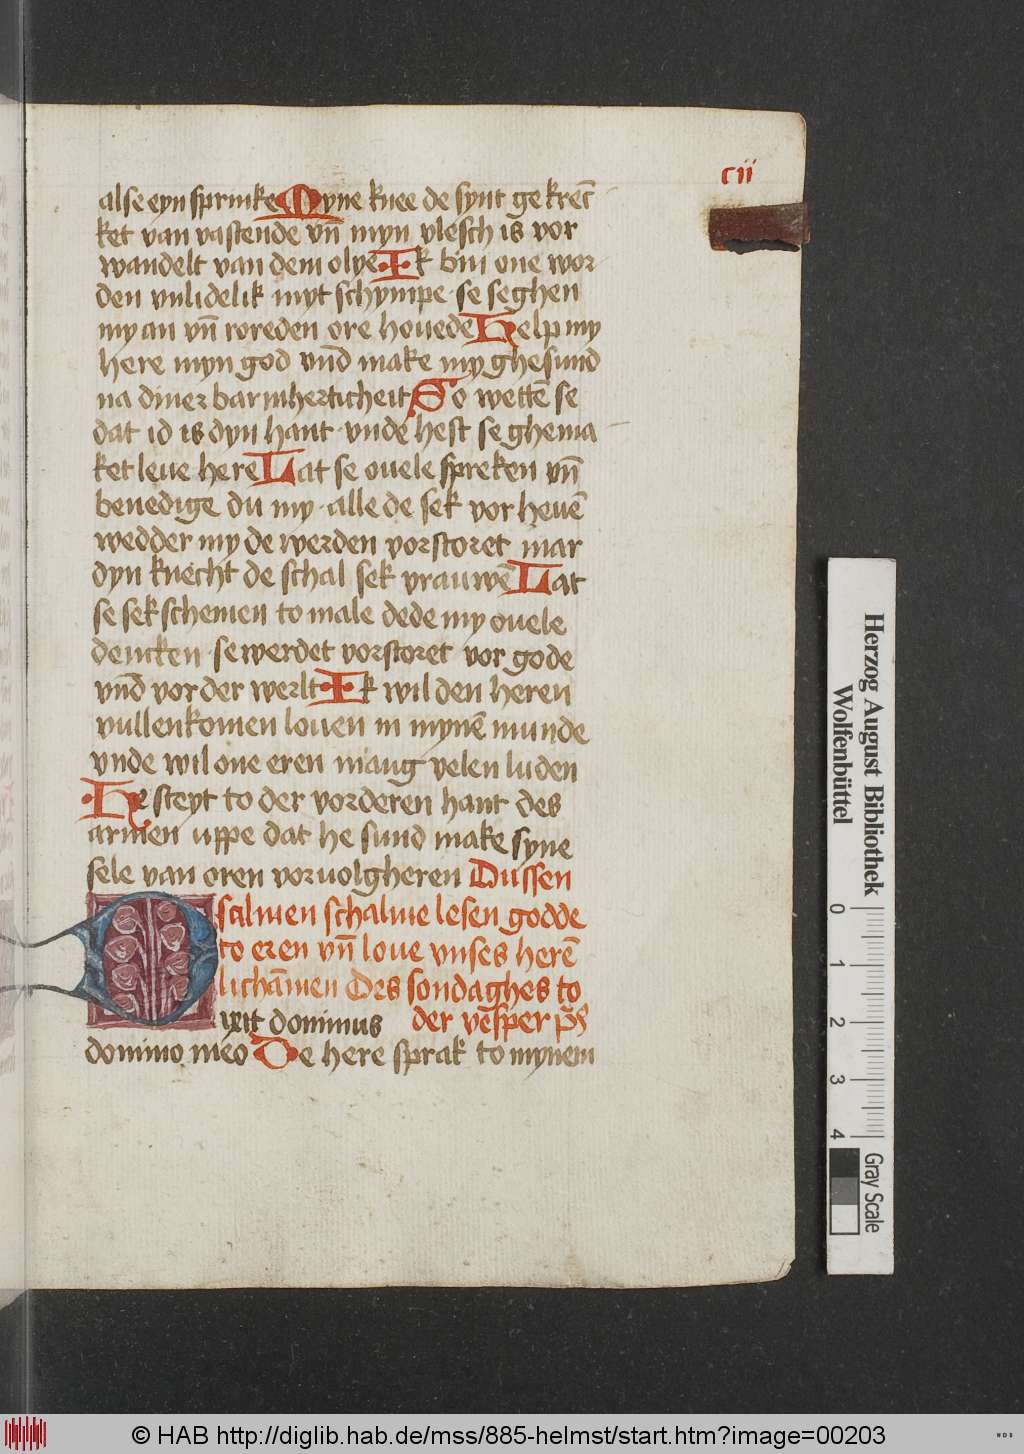 cii
alse eyn sprinke Myne knee de synt ge krēc
ket van vastende vn̄ myn vlesch is vor
wandelt van dem olye Ik bin one wor
den vnlidelik myt schympe · se seghen
my an vn̄ roreden ore houede Help my
here myn god vnd make my ghesund
na diner barmherticheit So wettē se
dat id is dyn hant · vnde hest se ghema
ket leue here Lat se ouele spreken vn̄
benedige du my · alle de sek vor heuē
wedder my de werden vorstoret mar
dyn knecht de schal sek vrauwē Lat
se sek schemen to male dede my ouele
dencken · se werdet vorstoret vor gode
vnd vor der werlt · Ik wil den heren
vullenkomen louen in mynē munde
vnde wil one eren mang velen luden
He steyt to der vorderen hant des
armen uppe dat he sund make syne
sele van oren voruolgheren Dussen
salmen schalme lesen godde
to eren vn̄ loue vnses herē
lichāmen Des sondaghes to
der vēsper p̄s
Dixit dominus
domino meo De here sprak to mynem
Herzog August Bibliothek
Wolfenbüttel
0 1 2 3 4
Gray Scale
© HAB http://diglib.hab.de/mss/885-helmst/start.htm?image=00203
WDB